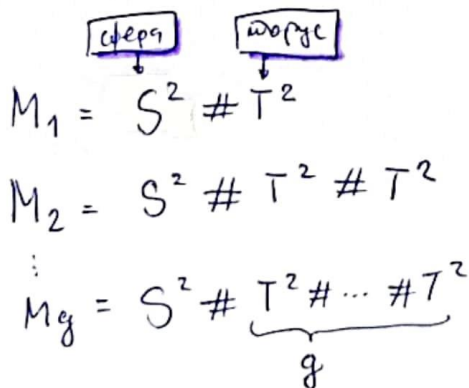 сфера торус
M₁ = S² # T²
M₂ = S² # T² # T²
⋮
Mg = S² # T² # ⋯ # T²
g